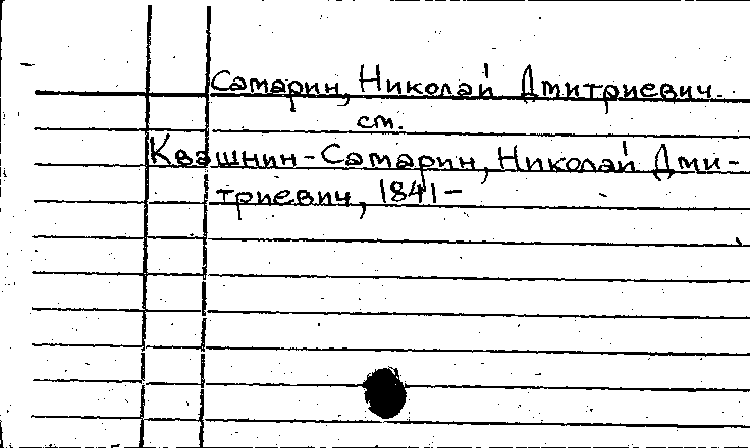 Самарин, Николай Дмитриевич.
см.
Квашнин-Самарин, Николай Дми-
триевич, 1841-